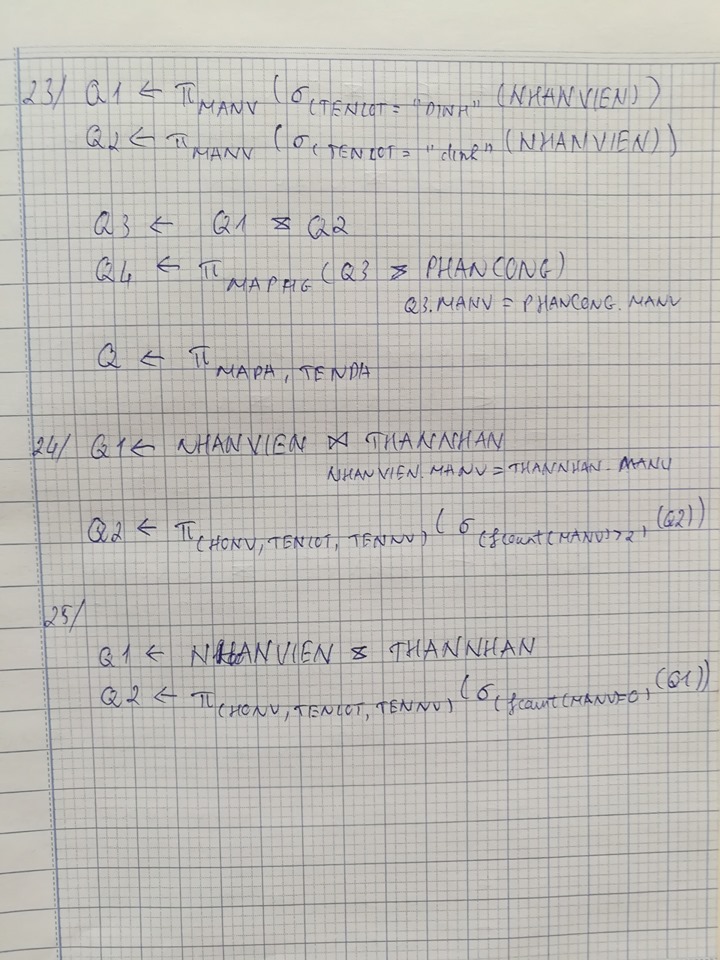 23/ Q1 ← π MANV (σ (TENLOT = "DINH" (NHANVIEN))
Q2 ← π MANV (σ (TENLOT = "dinh" (NHANVIEN))
Q3 ← Q1 ⋈ Q2
Q4 ← π MAPHG (Q3 ⋈ PHANCONG)
Q3.MANV = PHANCONG.MANV
Q ← π MADA, TENDA
24/ Q1 ← NHANVIEN ⋈ THANNHAN
NHANVIEN.MANV = THANNHAN.MANV
Q2 ← π (HONV, TENLOT, TENNV) (σ (fcount(MANV)>2) (Q2))
25/
Q1 ← NHANVIEN ⋈ THANNHAN
Q2 ← π (HONV, TENLOT, TENNV) (σ (fcount(MANV=0) (Q1))